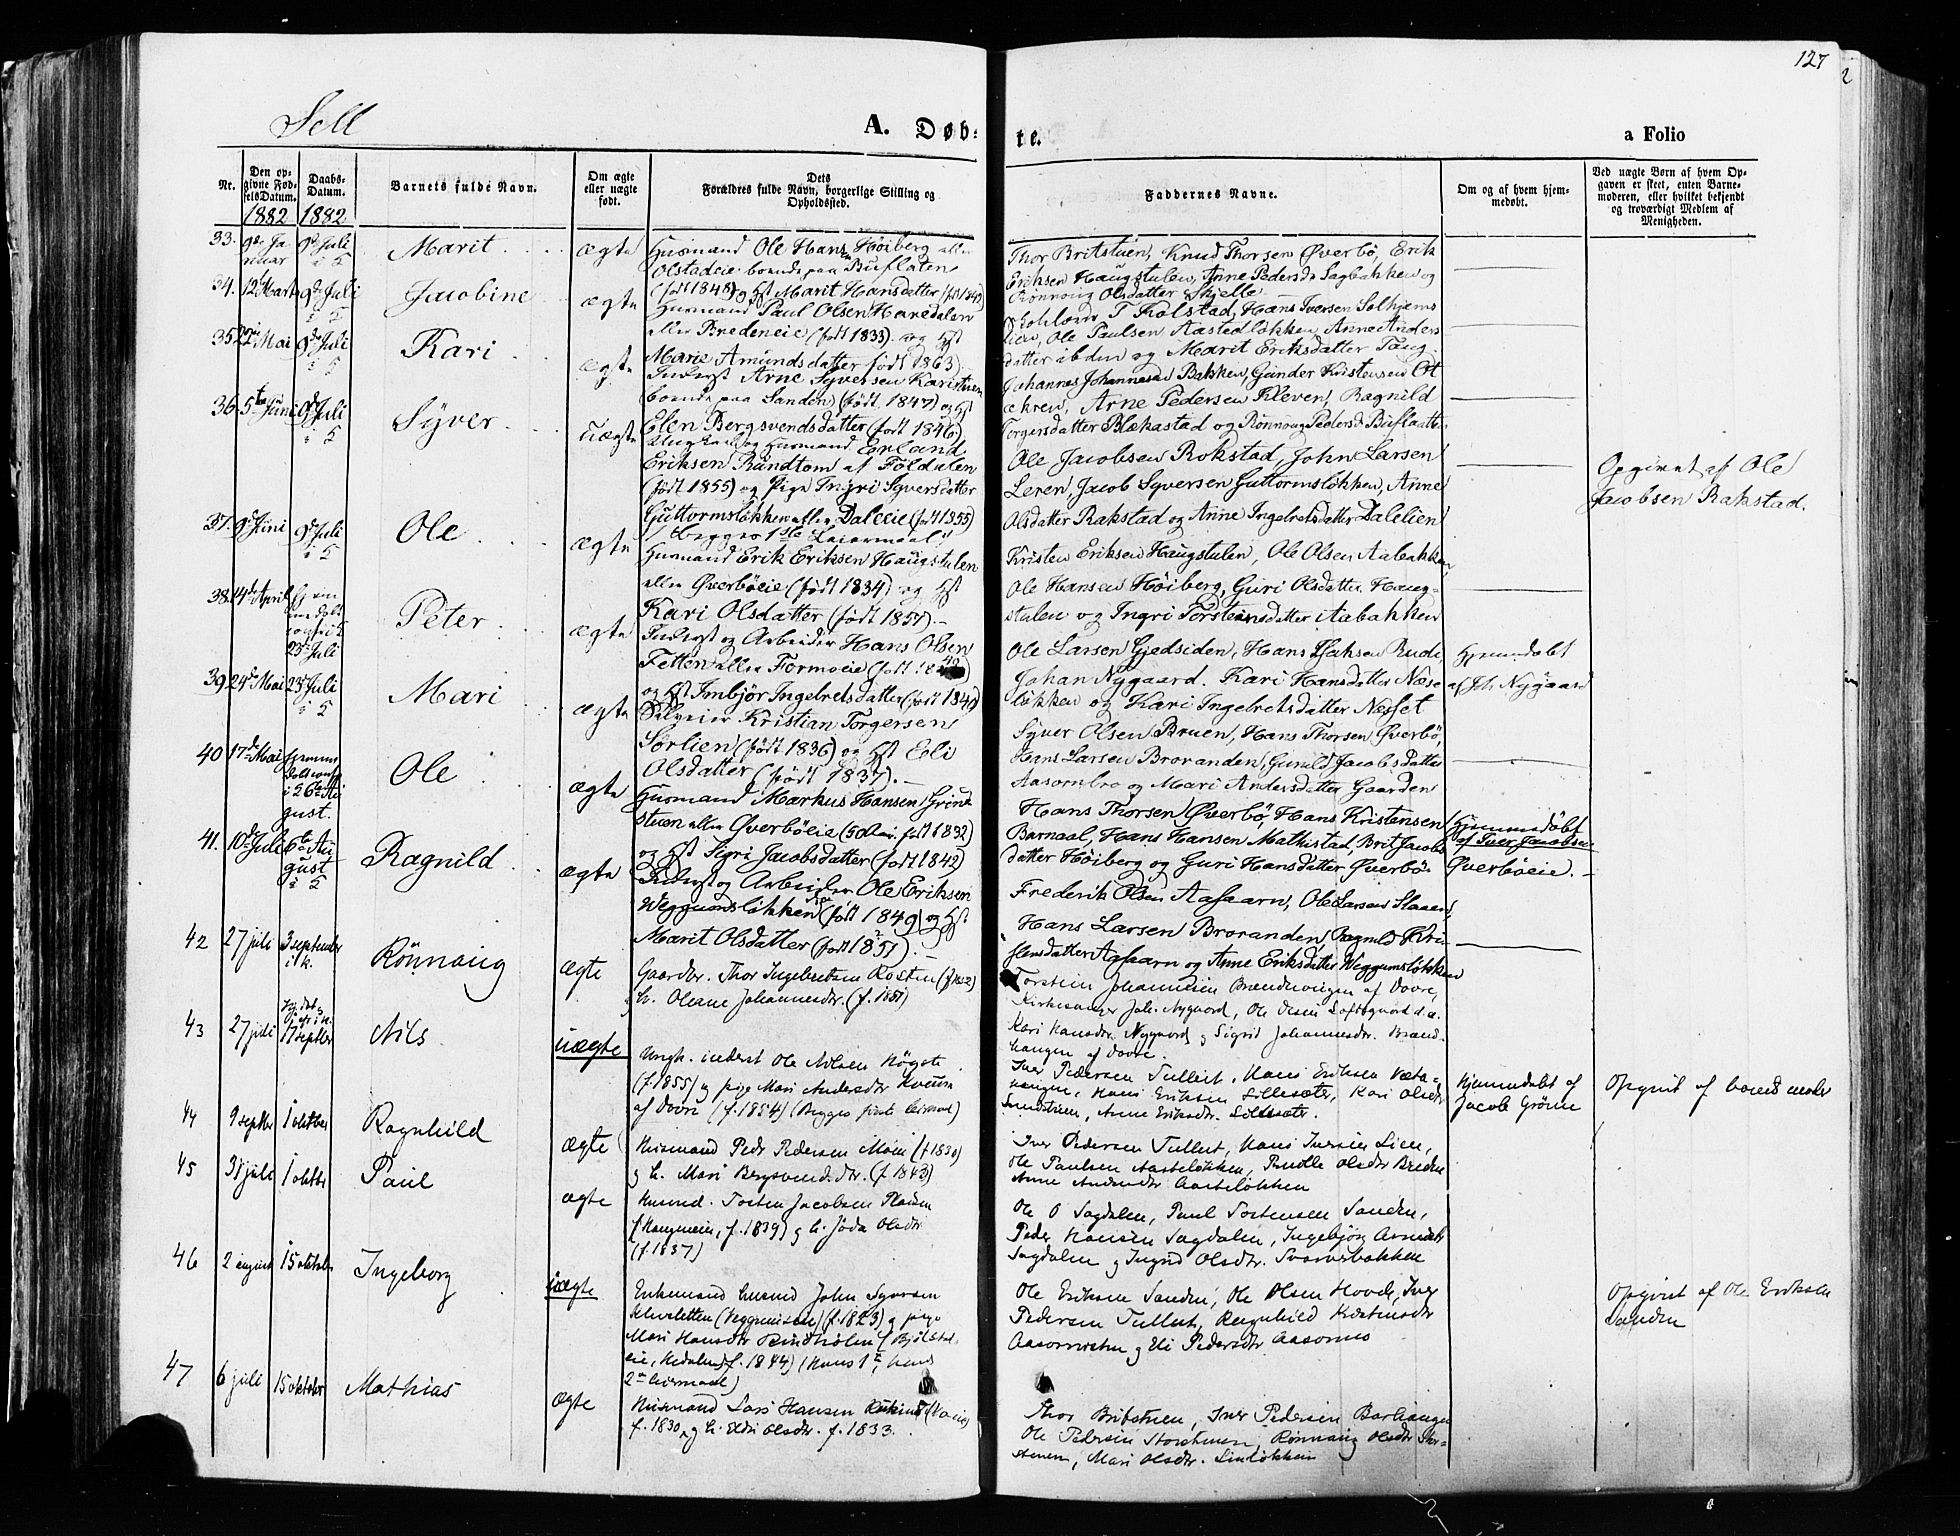 127
Sell
A. Døb-
te.
a Folio
Nr.
Den opgivne FødselsDatum.
1882
Daabs-Datum.
1882
Barnets fulde Navn.
Om ægte eller uægte født.
Dets
Forældres fulde Navn, borgerlige Stilling og Opholdssted.
Faddernes Navne.
Om og af hvem hjemmedøbt.
Ved uægte Børn af hvem Opgaven er skeet, enten Barnemoderen, eller hvilket bekjendt og troværdigt Medlem af Menigheden.
33. 9de Januar 9de Juli i S Marit ægte
Husmand Ole Hans. Höiberg eller
Olstadeie boende paa Buflaten
(født 1848) og Hst Marit Hansdatter
Thor Britstuen, Knud Thorsen Øverbö, Erik
Eriksen Haugstulen, Anne Pedersd. Sagbakken og
Rönnoug Olsdatter Skjelle
34. 12te Marts 9de Juli i S Jacobine ægte
Husmand Paul Olsen Haredalen
eller Bredeneie (født 1833) og Hst
Marie Amundsdatter født 1863)
T Kolstad, Hans Iversen Solhjems
lien, Ole Paulsen Aastadløkken, Anne Anders
datter ibden og Marit Eriksdatter Taug.
35 22de Mai 9de Juli i S Kari ægte
Inderst Arne Syversen Karistuen
boende paa Sanden (født 1847) og Hst
Elen Bergsvendsdatter (født 1846)
Johannes Johannesen Bakken, Gunder Kristensen Ot
ækren, Arne Pedersen Kleven, Ragnild
Torgersdatter Blekastad og Rönnoug Pedersd. Buflaatt.
36. 5te Juni 9de Juli i S Syver uægte
Ungkarl og Husmand Erland
Eriksen Rundtom af Foldalen
(født 1855) og Pige Ingri Syversdatter
Guttormsløkken eller Daleeie (født 1855)
begges 1ste Leiermaal.
Ole Jacobsen Rokstad, John Larsen
Leren, Jacob Syversen Guttormsløkken, Anne
Olsdatter Rakstad og Anne Ingebretsdatter Dalelien
Opgivet af Ole
Jacobsen Rakstad.
37. 9de Juni 9de Juli i S Ole ægte
Husmand Erik Eriksen Haugstulen
eller Øverböeie (født 1834) og Hst
Kari Olsdatter (født 1857).
Kristen Eriksen Haugstulen, Ole Olsen Aabakken,
Ole Hansen Höiberg, Guri Olsdatter Haug-
stulen og Ingri Torsteinsdatter Aabakken
38. 14de April 23de Juli Peter ægte
Inderst og Arbeider Hans Olsen
Fetten eller Formoeie
og Hst Imbjör Ingebretsdatter (født 1840)
Ole Larsen Gjedsiden, Hans Isaksen Rudi,
Johan Nygaard. Kari Hansdatter Næse
løkken og Kari Ingebretsdatter Næsset
Hjemmdøbt
af Joh. Nygaard
39. 24de Mai 23de Juli i S Mari ægte
Selveier Kristian Torgersen
Sörlien (født 1836) og Hst Eli
Olsdatter (født 1837).
Syver Olsen Bruen, Hans Thorsen Øverbö,
Hans Larsen Broranden, Gunild Jacobsdatter
Aasornbro og Mari Andersdatter Gaarden
40 17de Mai Hjemmedøbt i S 6te August. Ole ægte
Husmand Markus Hansen Grind
stuen eller Øverböeie (født 1832)
og Hst Sigri Jacobsdatter (født 1842)
Hans Thorsen Øverbö, Hans Kristensen
Barnaal, Hans Hansen Mathistad, Brit Jacobs
datter Höiberg og Guri Hansdatter Øverbö
Hjemmedøbt
af Iver Jacobsen
Øverböeie.
41. 10de Juli 6te August i S Ragnild ægte
Inderst og Arbeider Ole Eriksen
Weggumsløkken (født 1849) og Hst
Marit Olsdatter (født 1851).
Frederik Olsen Aasaarn, Ole Larsen Slaaen,
Hans Larsen Broranden, Ragnild Kri-
stensdatter Aasaarn og Anne Eriksdatter Weggumsløkken
42 27 juli 3 september i k. Rönnaug ægte
Gaardbr. Thor Ingebretsen Rosten
h. Oleane Johannesdr. (f. 1851)
Torstein Johannesen Brændevangen af Dovre,
Kirkesanger Joh. Nygaard, Ole Olsen Loftsgaard d.æ.
Kari Hansdr. Nygaard og Sigrid Johannesdr. Brænd-
vangen af Dovre.
43 27 juli 17 septbr Nils uægte
Ungk. inderst Ole Nilsen Høgste
(f. 1855) og pige Mari Andersdr Kveum
af Dovre (f. 1854) (Begges første leiermaal)
Iver Pedersen Tullut, Hans Eriksen Væta-
hangen, Hans Eriksen Lillesæter, Kari Olsdr
Sandstuen, Anne Eriksdr. Lillesæter.
Hjemmedøbt af
Jacob Grönn
Opgivet af barnets moder
44 9 septbr 1 oktbr Ragnhild ægte
Husmand Pedr Pedersen Moen (f 1830)
og h. Mari Bergsvendsdr. (f. 1843)
Iver Pedersen Tullut, Hans Iversen Lien,
Ole Paulsen Aasteløkken, Ole Olsdr Breden
Anne Andersdr Aasteløkken
45 31 juli 1 oktbr Paul ægte
Husmd. Tosten Jacobsen Pladsen
(Haugmeie, f. 1839) og h. Joda Olsdr
(f. 1837)
Ole O Sagdalen, Paul Tostensen Sanden,
Peder Hansen Sagdalen, Ingebjørg Arnesdr
Sagdalen og Ingrid Olsdr. Svarverbakken
46 2 august 15 oktober Ingeborg uægte
Enkemand husmd John Syversen
Kleveletten (f. 1823) og pige
Mari Hansdr Rundhölen (Bjölstad
eie, Hedalen) f. 1844) (Hans 1te, hendes
2det leiermaal)
Ole Eriksen Sanden, Ole Olsen Hovde, Iver
Pedersen Tullut, Ragnhild Kristensdr
og Eli Pedersdr Aasornes
Opgivet af Ole Eriksen
Sanden
47 6 juli 15 oktober Mathias ægte
Husmand Lars Hansen
f. 1830, og h. Eldri Olsdr. f. 1833.
Thor Britstuen, Iver Pedersen Barhaugen
Ole Pedersen Storstuen, Rönnaug Olsdr Stor-
stuen, Mari Olsdr. Linløkken